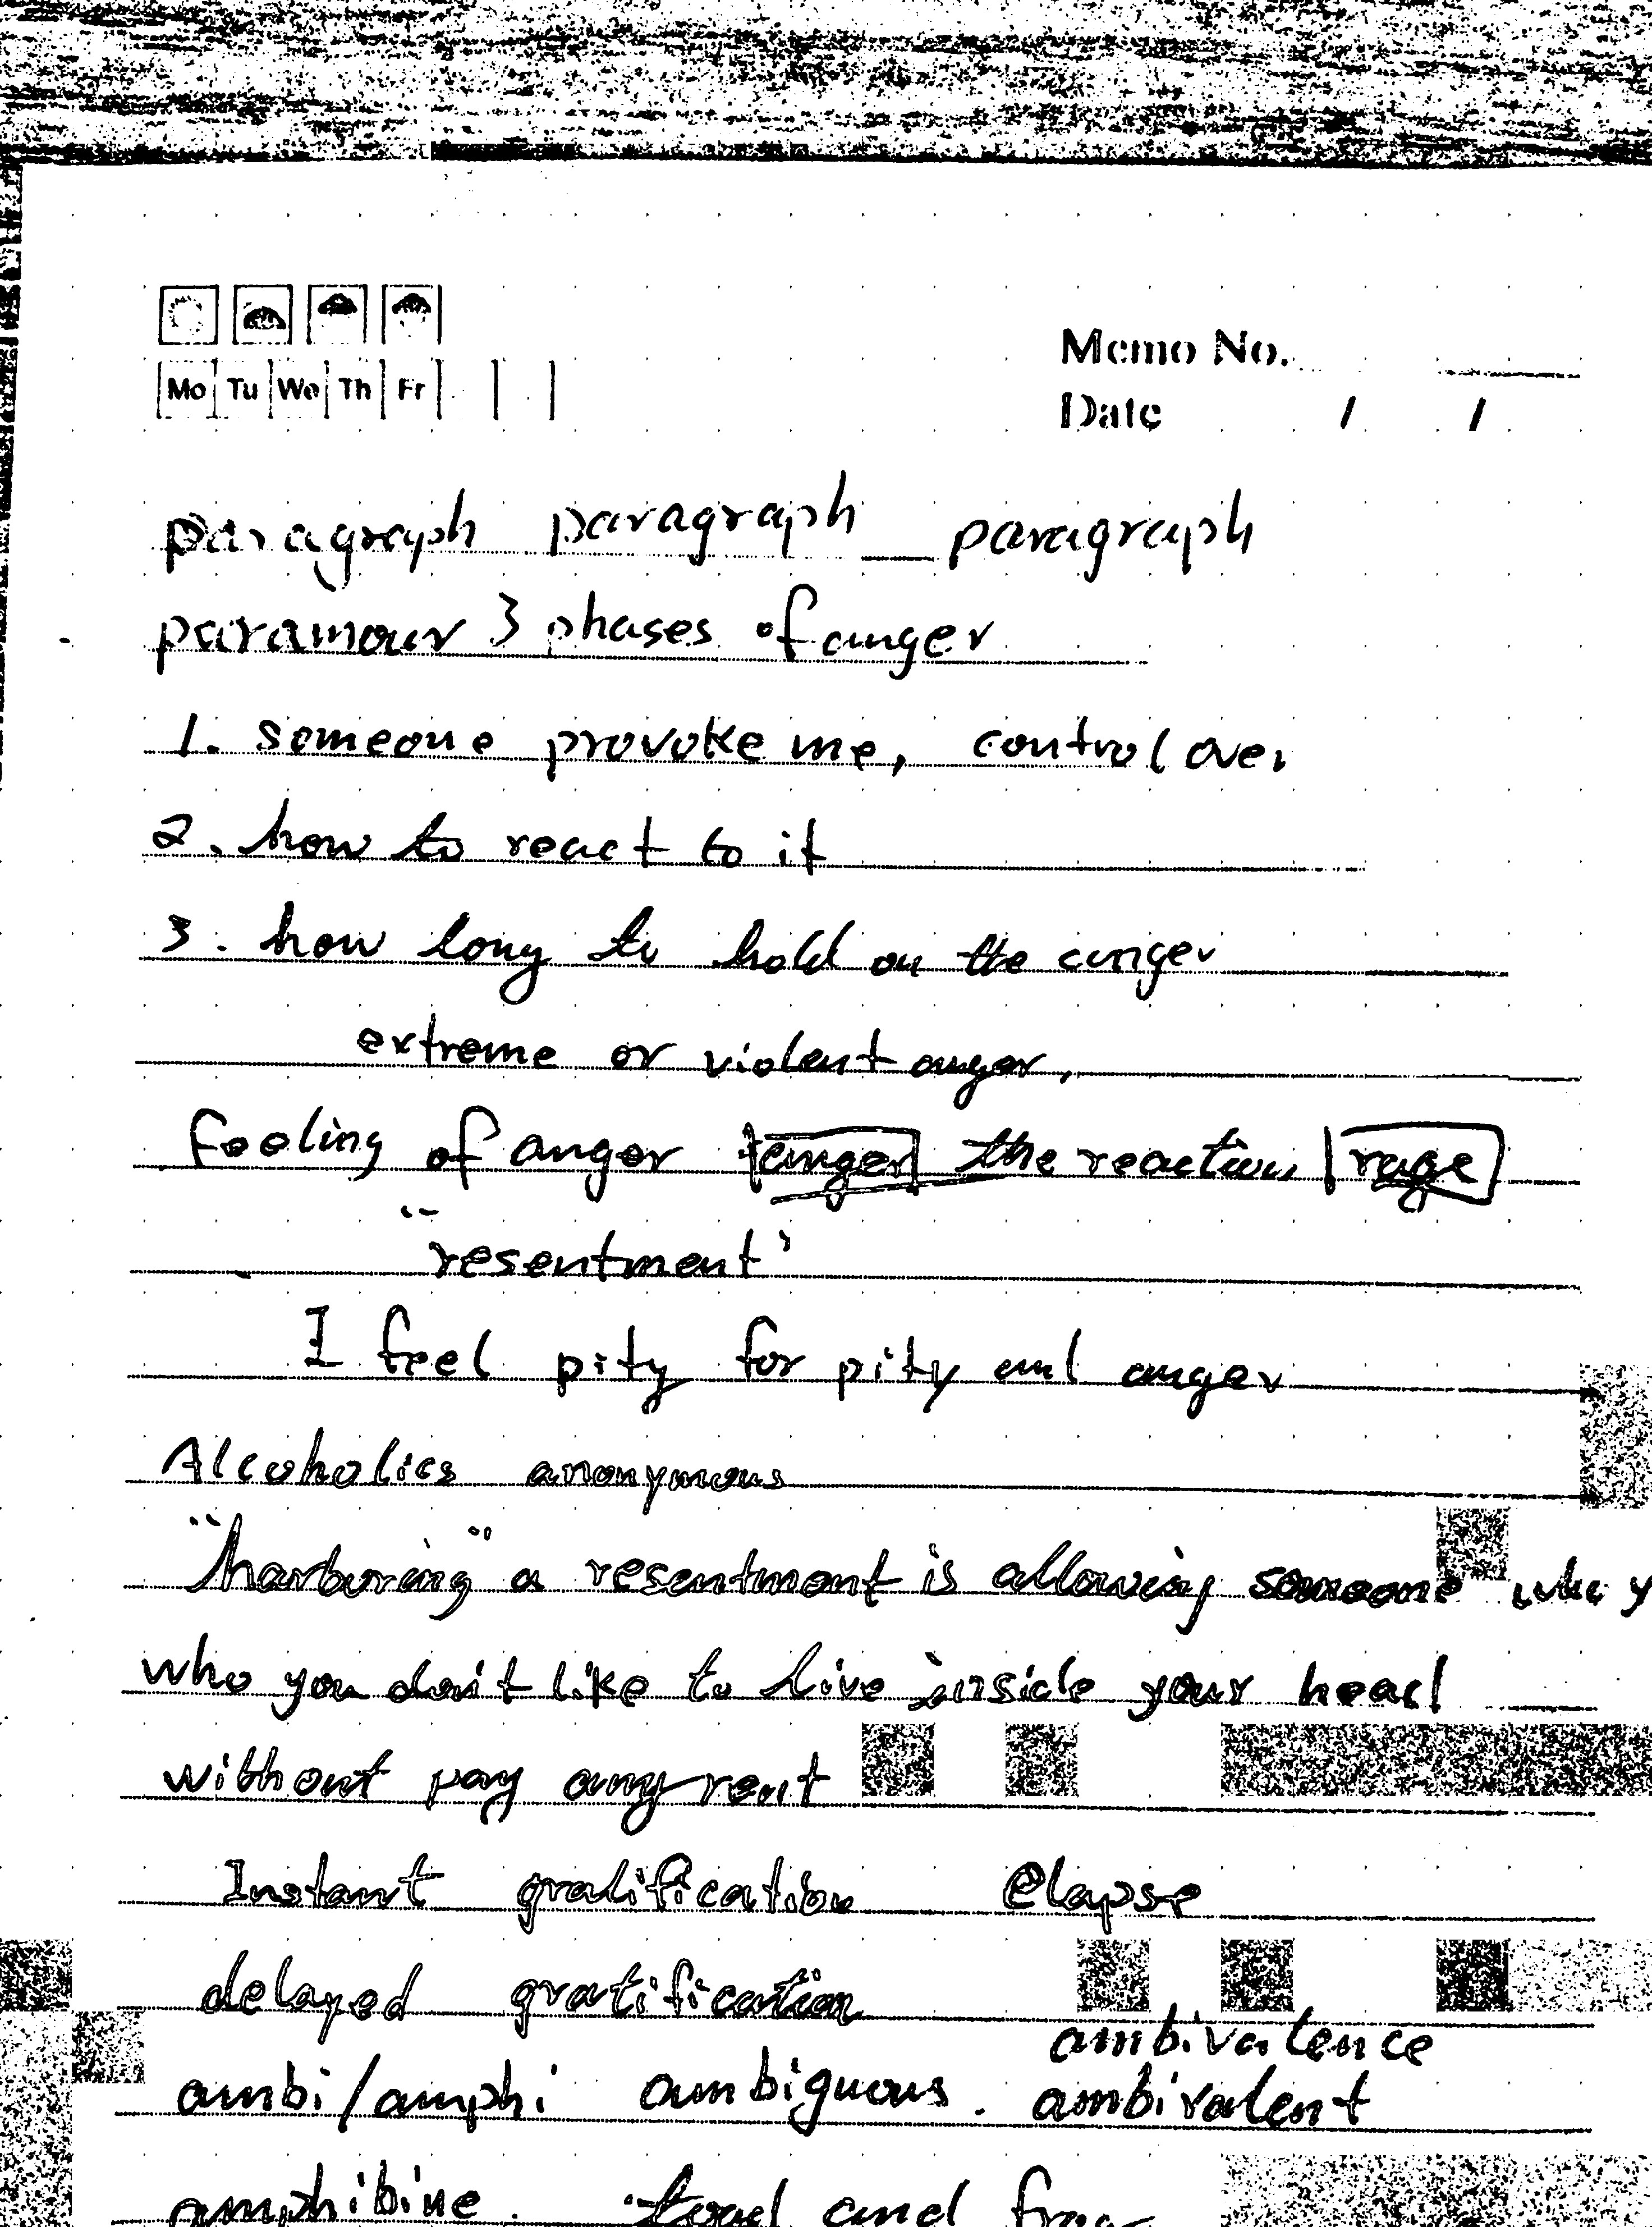 Memo No.
Mo Tu We Th Fr
Date / /
paragraph paragraph paragraph
paramour 3 phases of anger
1. someone provoke me, control over
2. how to react to it
3. how long to hold on the anger
extreme or violent anger,
feeling of anger anger the reaction rage
"resentment"
I feel pity for pity and anger
Alcoholics anonymous
"harboring" a resentment is allowing someone who y
who you don't like to live inside your head
without pay any rent
Instant gratification elapse
delayed gratification
ambivalence
ambi/amphi ambiguous. ambivalent
amphibine. toad and frog